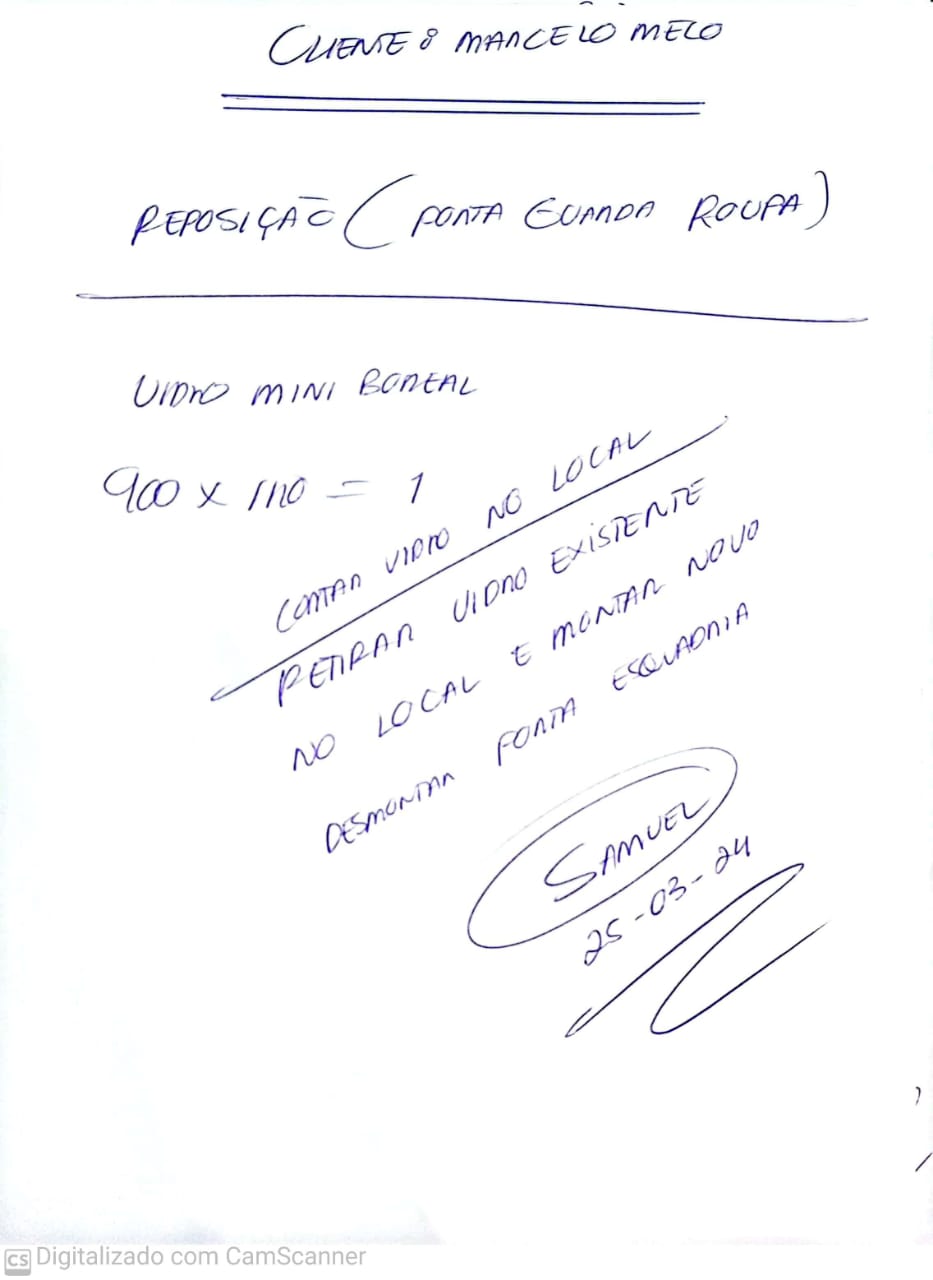 CLIENTE: MARCELO MELO
REPOSIÇÃO ( PORTA GUARDA ROUPA )
VIDRO MINI BOREAL
900 x 1110 = 1
CORTAR VIDRO NO LOCAL
RETIRAR VIDRO EXISTENTE
NO LOCAL E MONTAR NOVO
DESMONTAR PORTA ESQUADRIA
SAMUEL
25-03-24
CS Digitalizado com CamScanner